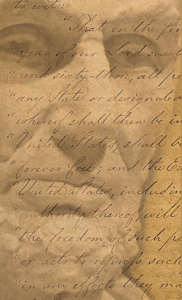 to wit:
"That on the fir
year of our Lord one th
and sixty-three, all pe
any State or designated
whereof shall then be in
United States, shall be
forever free; and the Ex
United States, includin
authority thereof, will
the freedom of such p
or acts to repress such
in any efforts they ma